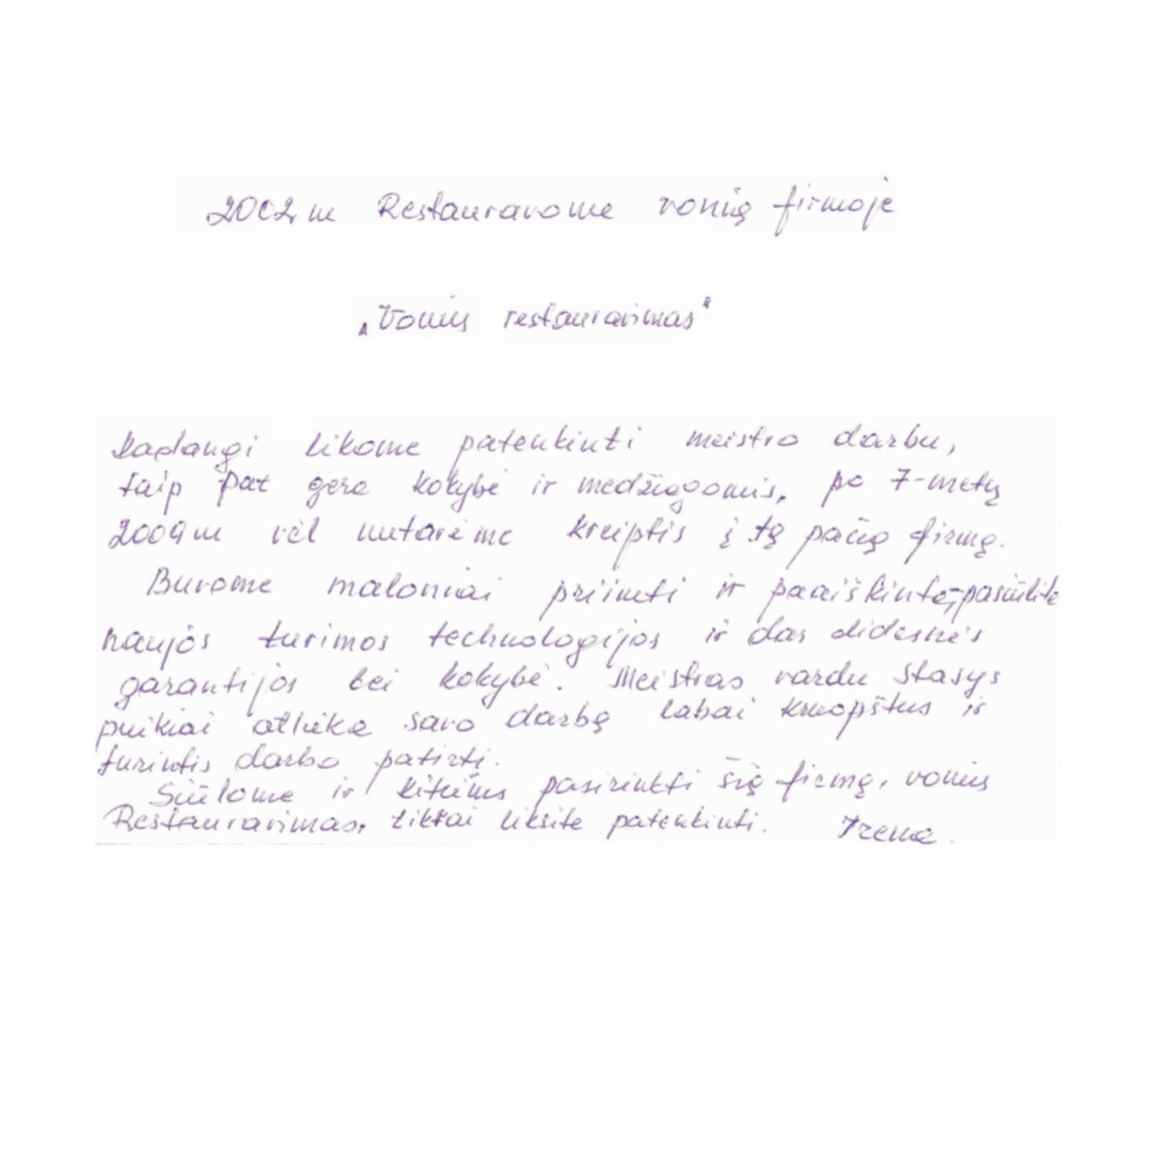 2002m Restauravome vonią firmoje
„Vonių restauravimas"
Kadangi likome patenkinti meistro darbu,
taip pat gera kokybė ir medžiagomis, po 7-metų
2009m vėl nutarėme kreiptis į tą pačią firmą.
Buvome maloniai priimti ir paaiškinta, pasiūlita
naujos turimos technologijos ir dar didesnės
garantijos bei kokybė. Meistras vardu Stasys
puikiai atlieka savo darbą labai kruopštus ir
turintis darbo patirti.
Siūlome ir kitiems pasirinkti šią firmą, vonių
Restauravimas, tiktai liksite patenkinti. Irena.